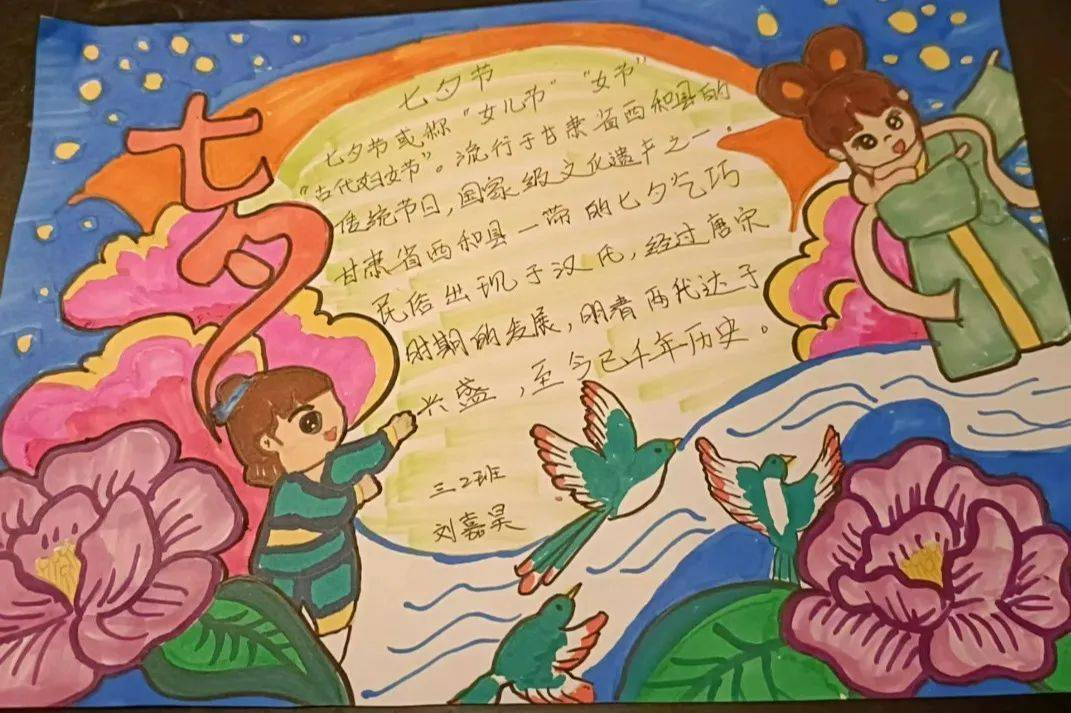 七夕
七夕节
七夕节或称“女儿节”“女节”
“古代妇女节”。流行于甘肃省西和县的
传统节日,国家级文化遗产之一.
甘肃省西和县一带的七夕乞巧
民俗出现于汉氏,经过唐宋
时期的发展,明清两代达于
兴盛,至今已千年历史。
三2班
刘嘉昊